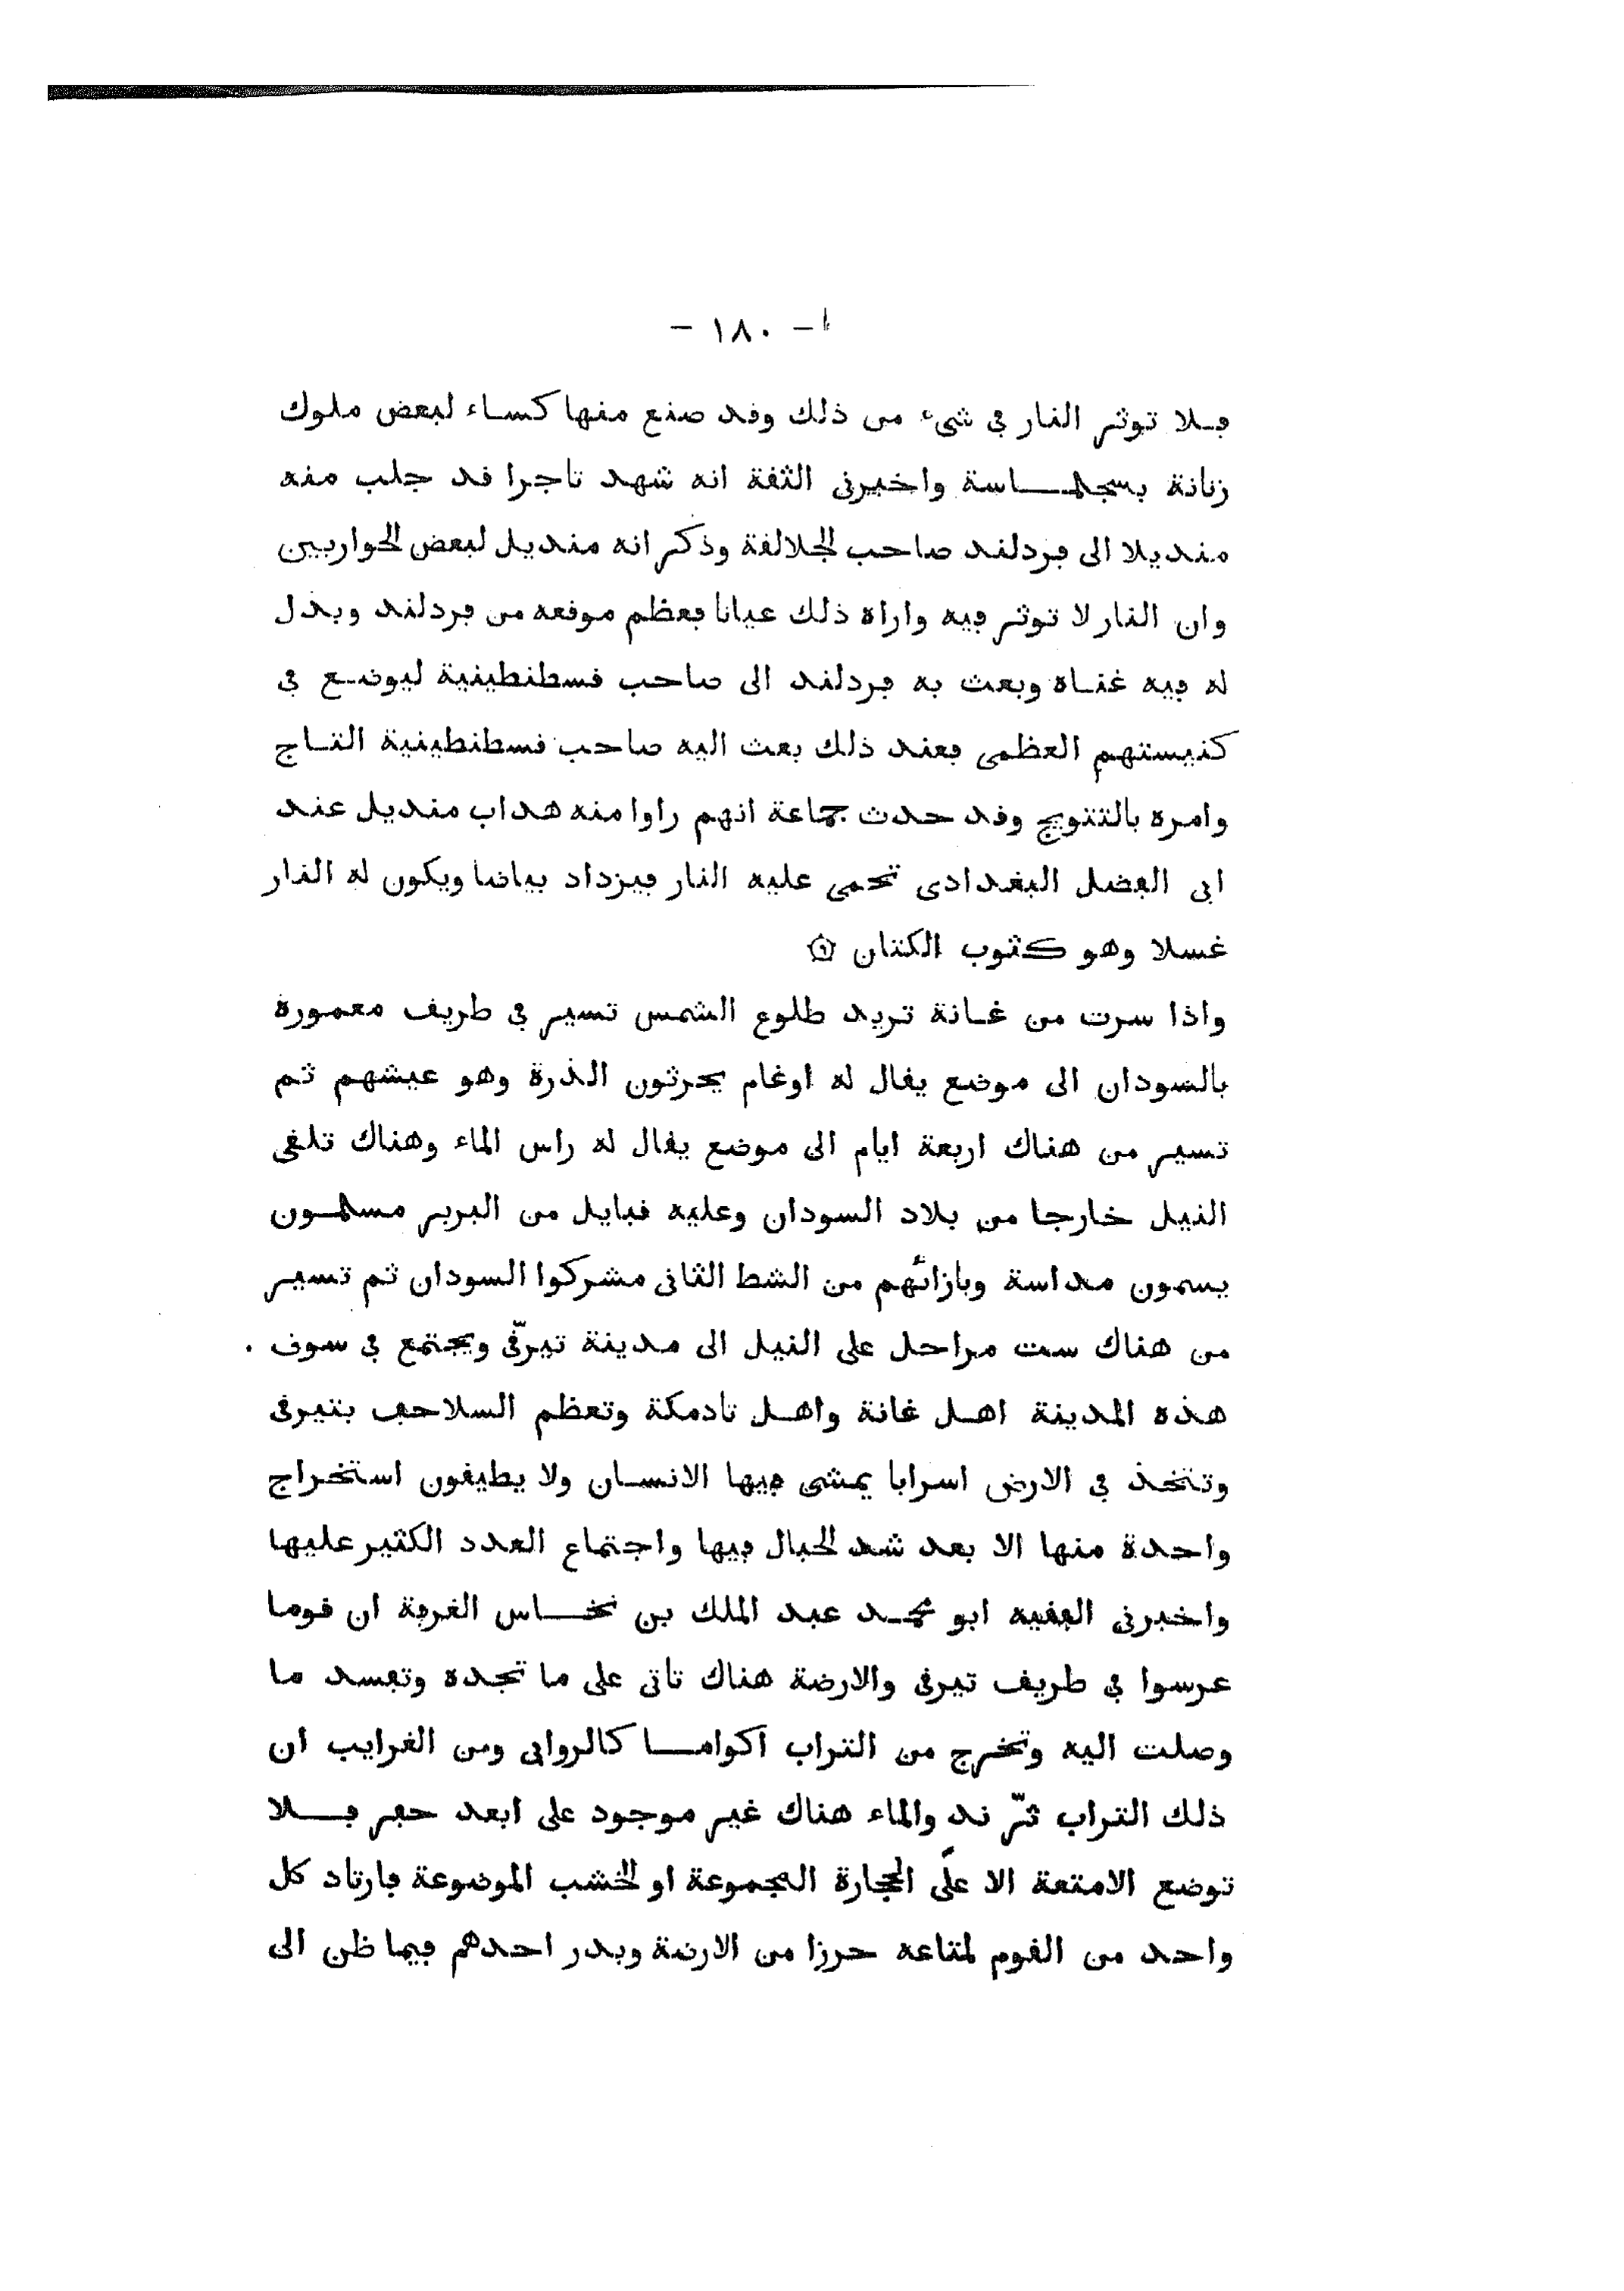 - ١٨٠ -
فلا توثر النار في شىء من ذلك وقد صنع منها كساء لبعض ملوك
زناتة بسجلماسة واخبرنى الثقة انه شهد تاجرا قد جلب منه
منديلا الى فردلند صاحب الجلالقة وذكر انه منديل لبعض الحواريين
وان النار لا توثر فيه واراه ذلك عيانا فعظم موقعه من فردلند وبذل
له فيه غناه وبعث به فردلند الى صاحب قسطنطينية ليوضع في
كنيستهم العظمى فعند ذلك بعث اليه صاحب قسطنطينية التاج
وامره بالتتويج وقد حدث جماعة انهم راوا منه هداب منديل عند
ابى الفضل البغدادى تحمى عليه النار فيزداد بياضا ويكون له النار
غسلا وهو كثوب الكتان
واذا سرت من غانة تريد طلوع الشمس تسير في طريق معمورة
بالسودان الى موضع يقال له اوغام يحرثون الذرة وهو عيشهم ثم
تسير من هناك اربعة ايام الى موضع يقال له راس الماء وهناك تلقى
النيل خارجا من بلاد السودان وعليه قبايل من البربر مسلمون
يسمون مداسة وبازائهم من الشط الثانى مشركوا السودان ثم تسير
من هناك ست مراحل على النيل الى مدينة تيرّقى ويجتمع في سوق
هذه المدينة اهل غانة واهل تادمكة وتعظم السلاحف بتيرقى
وتتخذ في الارض اسرابا يمشى فيها الانسان ولا يطيقون استخراج
واحدة منها الا بعد شد الحبال فيها واجتماع العدد الكثير عليها
واخبرنى الفقيه ابو محمد عبد الملك بن نخاس الغرفة ان قوما
عرسوا في طريق تيرقى والارضة هناك تاتى على ما تجده وتفسد ما
وصلت اليه وتخرج من التراب اكواما كالروابى ومن الغرايب ان
ذلك التراب ثرّ ند والماء هناك غير موجود على ابعد حفر فلا
توضع الامتعة الا على الحجارة المجموعة او الخشب الموضوعة فارتاد كل
واحد من القوم لمتاعه حرزا من الارضة وبدر احدهم فيما ظن الى